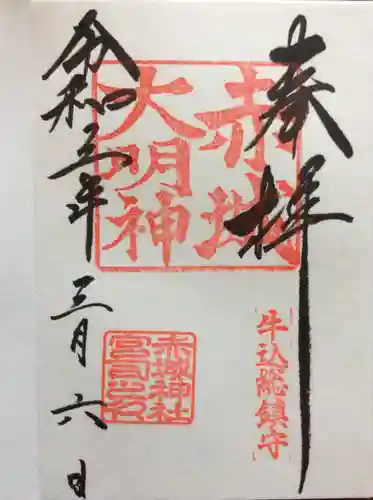 奉拝
牛込総鎮守
赤城
大明神
赤城神社
宮司之印
令和五年
三月六日